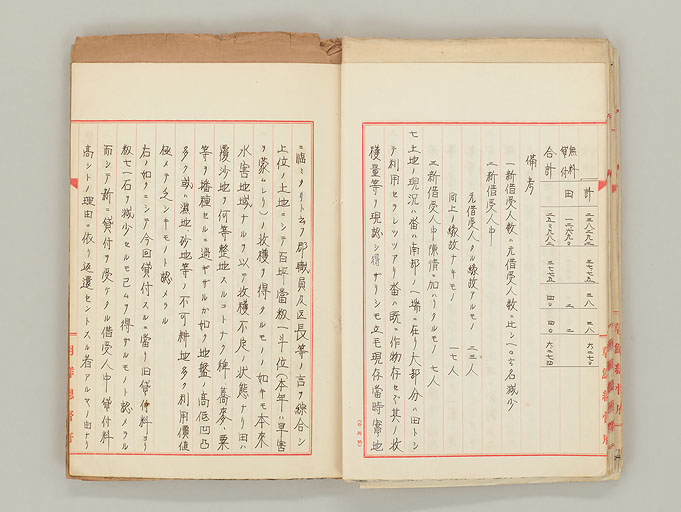 計
無料
貸付
田
合計
備考
一新借受人数ハ元借受人数ニ比シ一〇六名減少
二新借受人中
元借受人タル縁故アルモノ 二三人
同上ノ縁故ナキモノ 一七人
三新借受人中陳情ニ加ハリタルモノ 七人
七上地ノ現況ハ畓ハ南部ノ一場ニ在リ大部分ハ田トシ
テ利用セラレツツアリ畓ハ既ニ作物存セズ其ノ収
穫量等ヲ現認シ得ザリシモ立毛現存當時實地
ニ臨ミタリト云フ郡職員及区長等ノ言ヲ綜合シ
上位ノ土地ニシテ百坪當籾一斗位(本年ハ旱害
ヲ蒙ムレリ)ノ收穫ヲ得タルモノノ如キモ本來
水害地域ナルヲ以テ收穫不定ノ狀態ナリ田ハ
覆沙地ヲ何等整地スルコトナク稗、蕎麥、粟
等ヲ播種セルニ過ギザルガ如ク地盤ノ高低凹凸
多ク或ハ濕地、砂地等ノ不可耕地多ク利用價値
極メテ乏シキモノト認メラル
右ノ如クニシテ今回貸付スルニ當リ旧貸付料ヨリ
籾七一石ヲ減少セルモ已ムヲ得ザルモノト認メラル
而シテ新ニ貸付ヲ受ケタル借受人中貸付料
高シトノ理由ニ依リ返還セントスル者アルヤノ由ナリ
朝鮮總督府